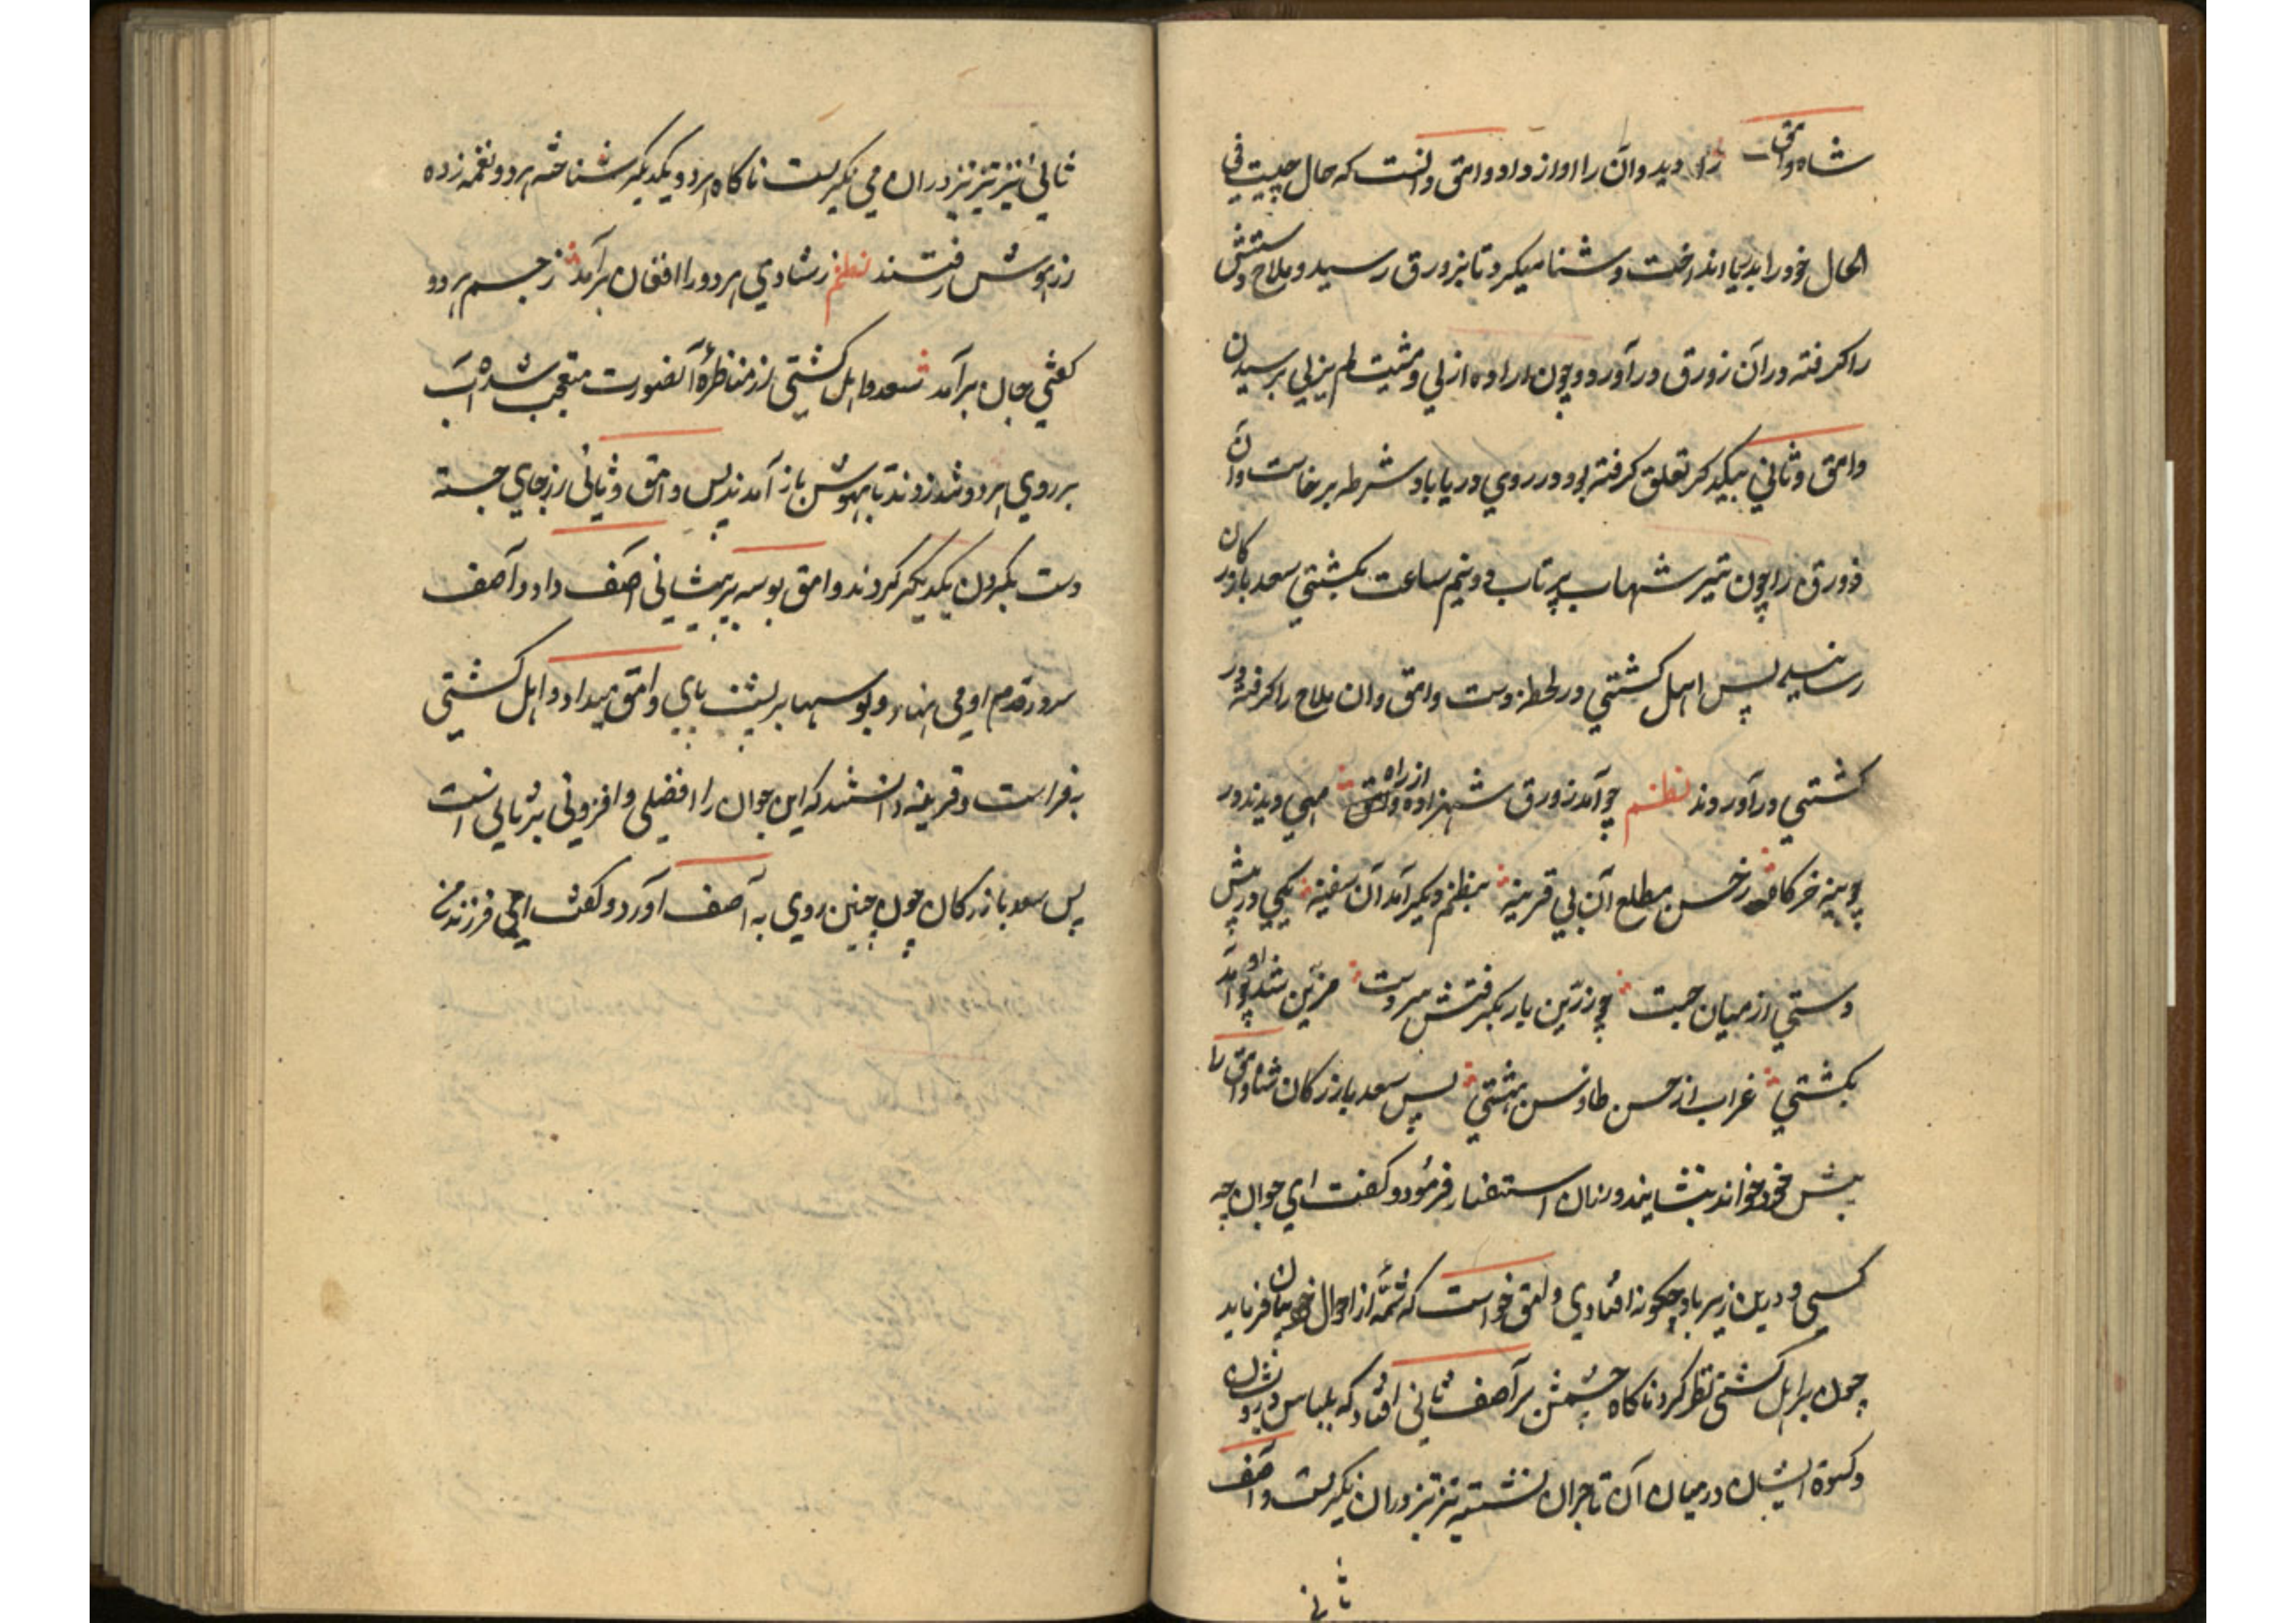 شاه وامق را دید و آن را آواز داد وامق دانست که حال چیست فی
الحال خود را بدریا انداخت و شنا میکرد تا بزورق رسید و ملاح دستش
را کرفته در آن زورق در آورد و چون اراده ازلی و مشیت لم یزلی برسیدن
وامق و ثانی بیکدکر تعلق کرفته بود در روی دریا باد شرطه برخاست و آن
زورق را چون تیر شهاب پرتاب در نیم ساعت بکشتی سعد بازرکان
رسانید پس اهل کشتی در لحظه دست وامق و ان ملاح را کرفته در
کشتی در آوردند نظم چو آمد زورق شهزاده وامق از راه مهی دیدند در
چوبینه خرکاه ز حسن مطلع آن بی قرینه بنظم دیکر آمد آن سفینه یکی در پیش
دستی از میان جست چو زرین یار بکرفتش سر دست مزین شد چو او آمد
بکشتی غراب از حسن طاوس بهشتی پس سعد بازرکان شاه وامق را
پیش خود خواند بنشایند و زبان استفسار فرمود و کفت ای جوان چه
کسی و درین زیرباد چکونه افتادی وامق خواست که شمه از احوال خود بیان فرماید
چون بر اهل کشتی نظر کرد ناکاه چشمش بر آصف ثانی افتاد که بلباس درویشان
و کسوة ایشان در میان آن تاجران نشسته تیز تیز در آن نیکریست و آصف
ثانی
ثانی نیز تیز تیز در ان می نکریست ناکاه هر دو یکدیکر شناخته هر دو نغمه زده
از هوش رفتند نظم ز شادی هر دو را افغان برآمد ز جسم هر دو
کفتی جان برآمد سعد و اهل کشتی از مناظرهٔ آنصورت متعجب شده آب
بر روی هر دو شد زوند تا بهوش باز آمدند پس وامق و ثانی از جای جسته
دست بکردن یکدیکر کردند وامق بوسه بر پیشانی اصف داد و آصف
سر در قدم او می نهاد و بوسها بر پشت پای وامق میداد و اهل کشتی
بفراست و قرینه دانستند که این جوان را افضلی و افزونی بر ثانی است
پس سعد بازرکان چون چنین روی به آصف آورد و کفت ای فرزند من